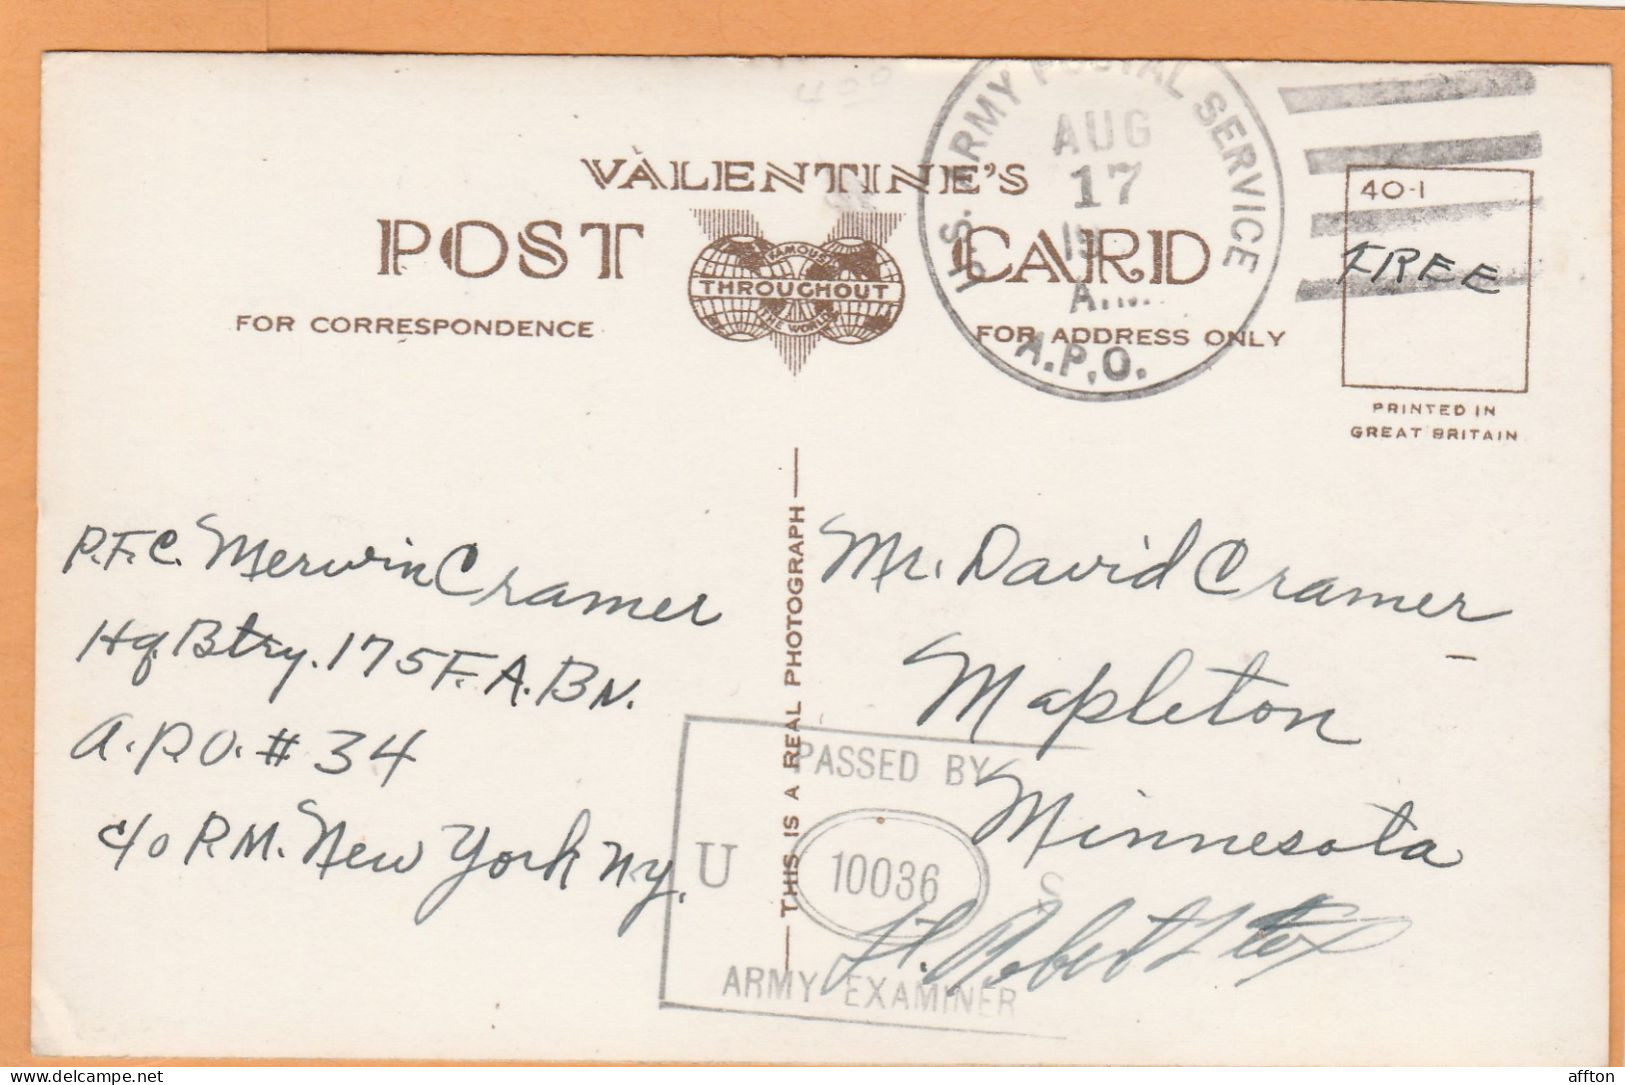 400
VALENTINE'S
POST CARD
FAMOUS
THROUGHOUT
THE WORLD
FOR CORRESPONDENCE
FOR ADDRESS ONLY
U.S. ARMY POSTAL SERVICE
AUG
17
A.P.O.
40-1
FREE
PRINTED IN
GREAT BRITAIN
P.F.C. Merwin Cramer
Hq. Btry. 175 F.A. Bn.
A.P.O. # 34
c/o P.M. New York N.Y.
THIS IS A REAL PHOTOGRAPH
Mr. David Cramer
Mapleton
Minnesota
PASSED BY
U S
10036
ARMY EXAMINER
Lt. Robert
affton